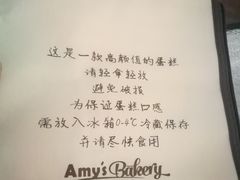 这是一款高颜值的蛋糕
请轻拿轻放
避免破损
为保证蛋糕口感
需放入冰箱0-4℃冷藏保存
并请尽快食用
Amy's Bakery